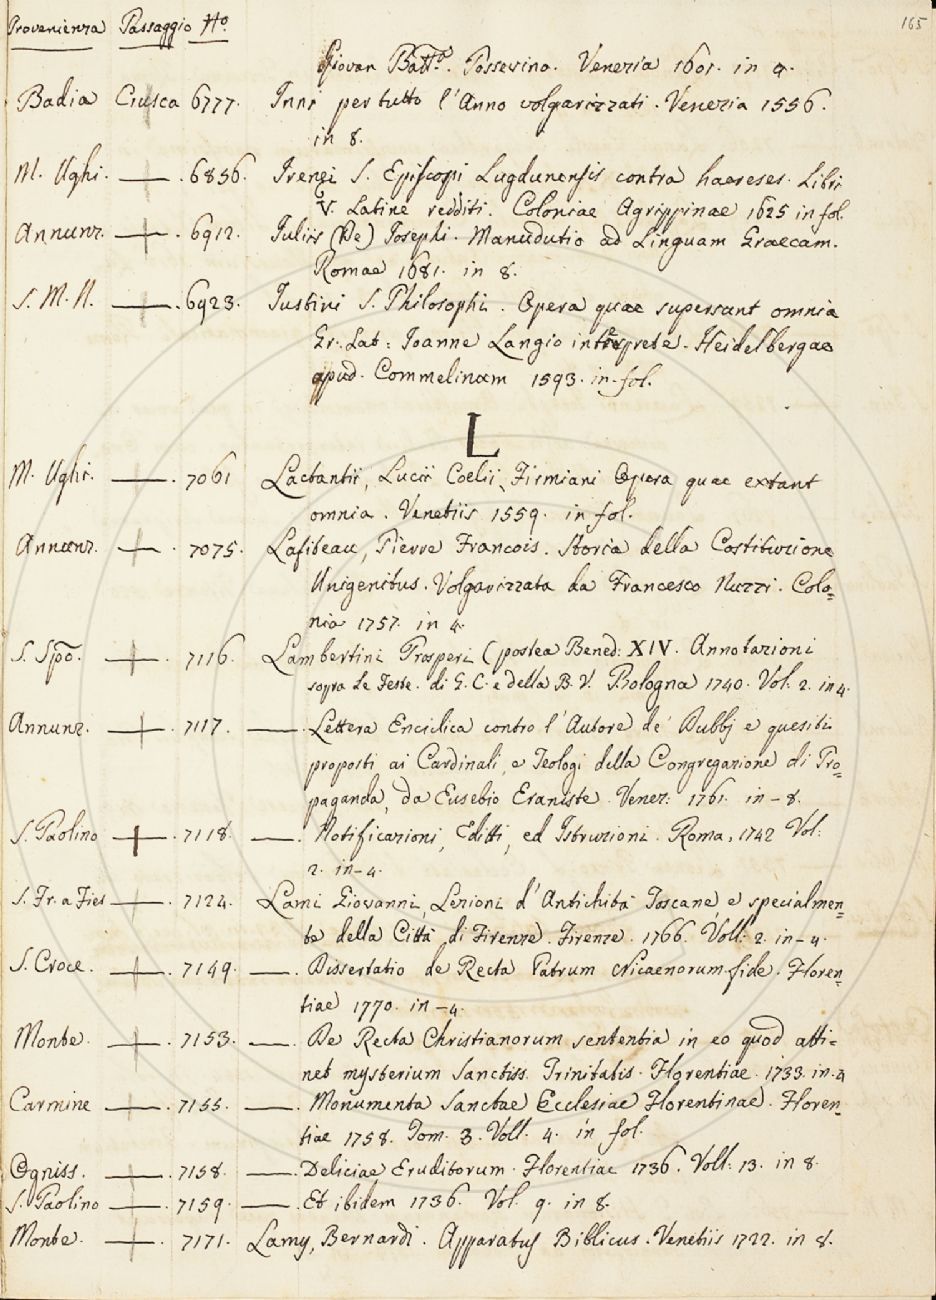 165
Provenienza Passaggio No.
Giovan Batta. Possevino. Venezia 1601. in 4.
Badia Crusca 6777. Inni per tutto l'Anno volgarizzati. Venezia 1556.
in 8.
M. Ughi. — . 6856. Irenei S. Episcopi Lugdunensis contra haereses. Libri
V. Latine redditi. Coloniae Agrippinae 1625 in fol.
Annunz. — . 6912. Iuliis (De) Josephi. Manudutio ad Linguam Graecam.
Romae 1681. in 8.
S. M. N. — . 6923. Iustini S. Philosophi. Opera quae supersunt omnia
Gr. Lat: Joanne Langio interprete. Heidelbergae
apud. Commelinum 1593. in fol.
L
M. Ughi. — . 7061 Lactantii, Lucii Coelii, Firmiani Opera quae extant
omnia. Venetiis 1559. in fol.
Annunz. — . 7075. Lafiteau, Pierre Francois. Storia della Costituzione
Unigenitus. Volgarizzata da Francesco Nuzzi. Colo=
nia 1757. in 4.
S. Spo. — . 7116. Lambertini Prosperi (postea Bened: XIV. Annotazioni
sopra Le Feste. di G. C. e della B. V. Bologna 1740. Vol. 2. in 4.
Annunz. — . 7117. — . Lettera Enciclica contro l'Autore de' Dubbj e quesiti
proposti ai Cardinali, e Teologi della Congregazione di Pro=
paganda, da Eusebio Eraniste. Venez: 1761. in - 8.
S. Paolino — . 7118. — . Notificazioni, Editti, ed Istruzioni. Roma, 1742 Vol:
2. in - 4.
S. Fr. a Fies — . 7124. Lami Giovanni, Lezioni d'Antichità Toscane, e specialmen=
te della Città di Firenze. Firenze. 1766. Voll. 2. in - 4.
S. Croce. — . 7149. — . Dissertatio de Recta Patrum Nicaenorum fide. Floren=
tiae 1770. in - 4.
Monte. — . 7153. — . De Recta Christianorum sententia in eo quod atti=
net mysterium Sanctiss. Trinitatis. Florentiae. 1733. in. 4
Carmine — . 7155. — . Monumenta Sanctae Ecclesiae Florentinae. Floren=
tiae 1758. Tom. 3. Voll. 4. in fol.
Ogniss. — . 7158. — . Deliciae Eruditorum. Florentiae 1736. Voll. 13. in 8.
S. Paolino — . 7159. — . Et ibidem 1736. Vol. 9. in 8.
Monte. — . 7171. Lamy, Bernardi. Apparatus Biblicus. Venetiis 1722. in 8.